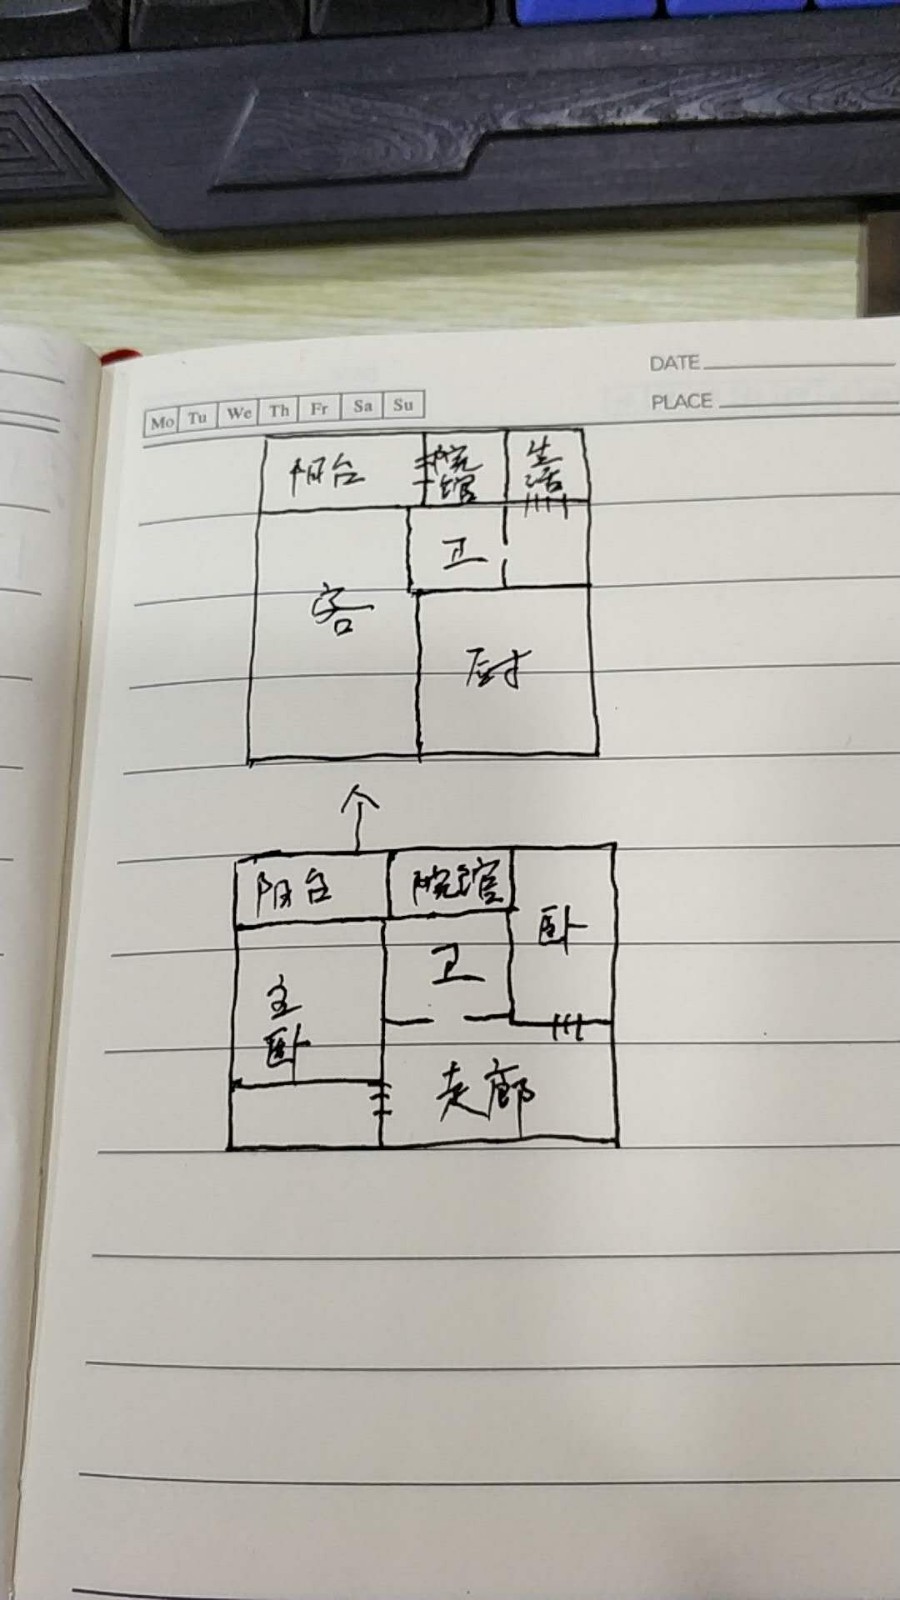 DATE
PLACE
Mo Tu We Th Fr Sa Su
阳台 院馆 生活
卫
客
厨
个
阳台 院馆 卧
卫
主卧
走廊